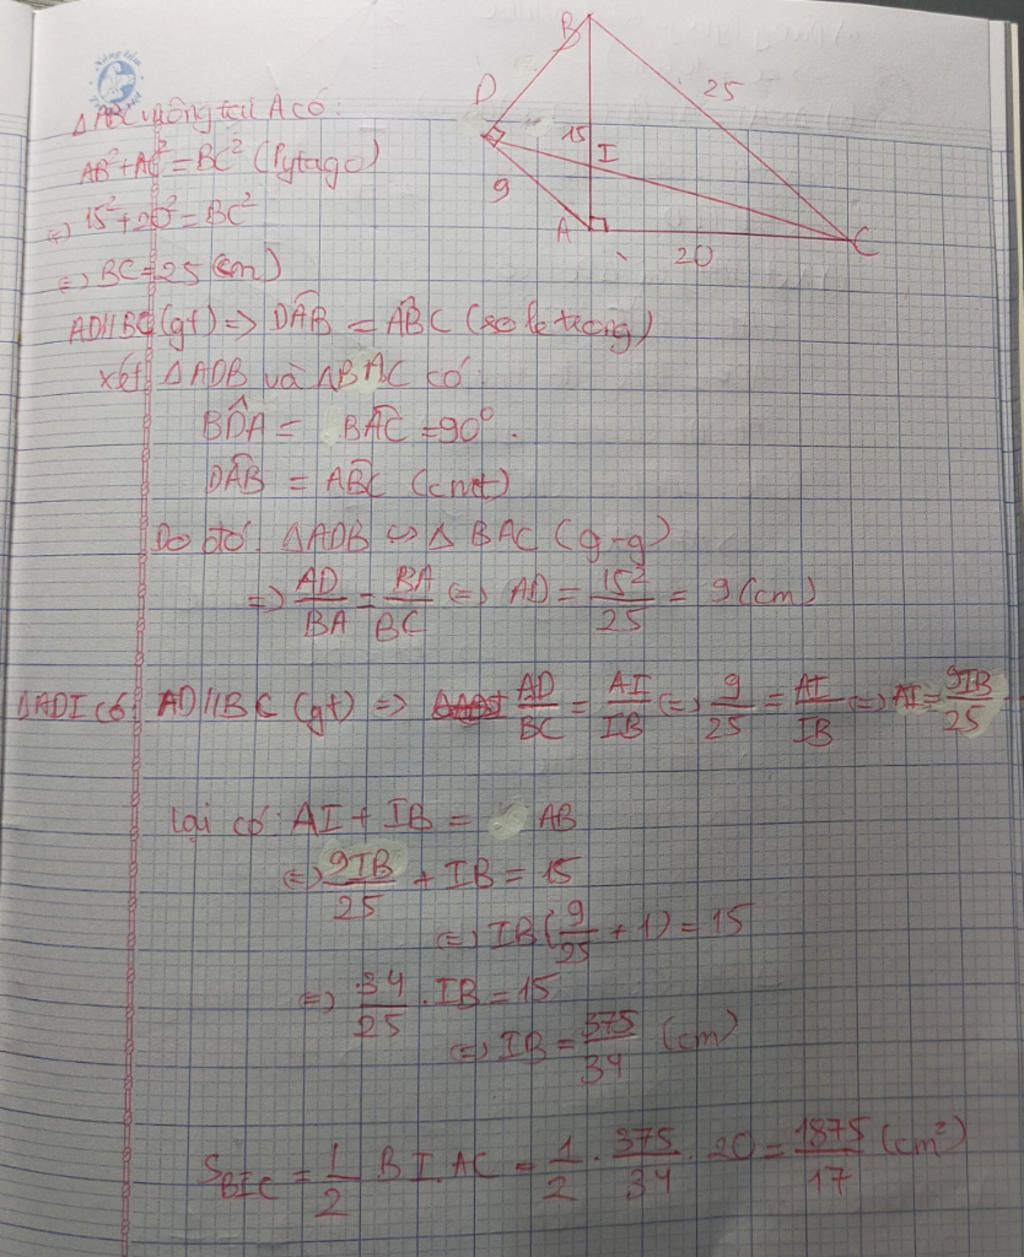 B
D
25
15
I
9
A
20
C
ΔABC vuông tại A có:
AB² + AC² = BC² (Pytago)
<=> 15² + 20² = BC²
<=> BC = 25 (cm)
AD//BC (gt) => DÂB = AB̂C (so le trong)
xét ΔADB và ΔBAC có:
BD̂A = BÂC = 90°.
DÂB = AB̂C (cmt)
Do đó: ΔADB ∽ Δ BAC (g-g)
=> AD/BA = BA/BC <=> AD = 15²/25 = 9 (cm)
ΔADI có AD//BC (gt) => AD/BC = AI/IB <=> 9/25 = AI/IB <=> AI = 9IB/25
Lại có: AI + IB = AB
<=> 9IB/25 + IB = 15
<=> IB(9/25 + 1) = 15
<=> 34/25 . IB = 15
<=> IB = 375/34 (cm)
S_BIC = 1/2 BI.AC = 1/2 . 375/34 . 20 = 1875/17 (cm²)